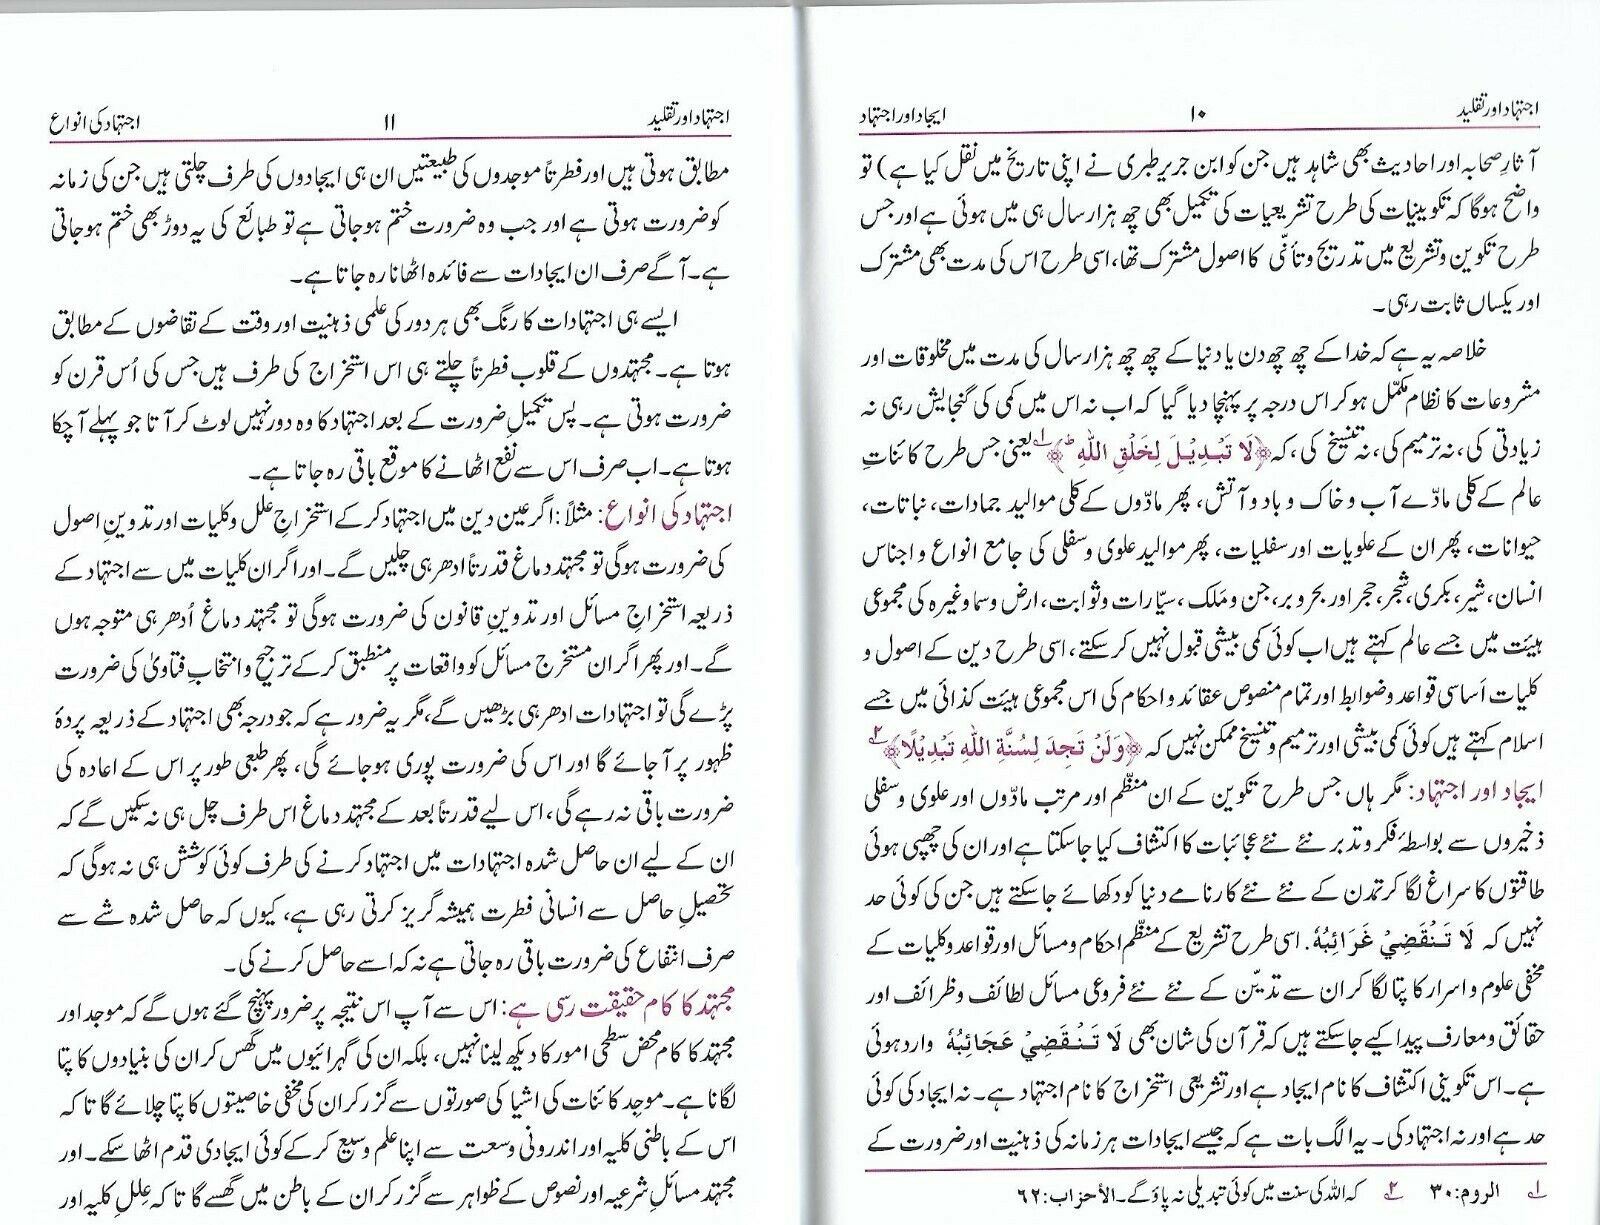 اجتہاد اور تقلید ۱۰ ایجاد اور اجتہاد
آثارِ صحابہ اور احادیث بھی شاہد ہیں جن کو ابن جریر طبری نے اپنی تاریخ میں نقل کیا ہے) تو
واضح ہوگا کہ تکوینیات کی طرح تشریعیات کی تکمیل بھی چھ ہزار سال ہی میں ہوئی ہے اور جس
طرح تکوین و تشریع میں تدریج و تأنّی کا اصول مشترک تھا، اسی طرح اس کی مدت بھی مشترک
اور یکساں ثابت رہی۔
خلاصہ یہ ہے کہ خدا کے چھ چھ دن یا دنیا کے چھ چھ ہزار سال کی مدت میں مخلوقات اور
مشروعات کا نظام مکمّل ہو کر اس درجہ پر پہنچا دیا گیا کہ اب نہ اس میں کمی کی گنجایش رہی نہ
زیادتی کی، نہ ترمیم کی، نہ تنسیخ کی، کہ ﴿لَا تَبْدِيْلَ لِخَلْقِ اللهِ ط﴾ ۱ یعنی جس طرح کائناتِ
عالم کے کلی مادّے آب و خاک و باد و آتش، پھر مادّوں کے کلی موالید جمادات، نباتات،
حیوانات، پھر ان کے علویات اور سفلیات، پھر موالید علوی و سفلی کی جامع انواع و اجناس
انسان، شیر، بکری، شجر، حجر اور بحر و بر، جن و مَلک، سیّارات و ثوابت، ارض و سما وغیرہ کی مجموعی
ہیئت میں جسے عالم کہتے ہیں اب کوئی کمی بیشی قبول نہیں کر سکتے، اسی طرح دین کے اصول و
کلیات اَساسی قواعد و ضوابط اور تمام منصوص عقائد و احکام کی اس مجموعی ہیئت کذائی میں جسے
اسلام کہتے ہیں کوئی کمی بیشی اور ترمیم و تنسیخ ممکن نہیں کہ ﴿وَلَنْ تَجِدَ لِسُنَّةِ اللهِ تَبْدِيْلًا﴾ ۲
ایجاد اور اجتہاد: مگر ہاں جس طرح تکوین کے ان منظّم اور مرتب مادّوں اور علوی و سفلی
ذخیروں سے بواسطۂ فکر و تدبر نئے نئے عجائبات کا اکتشاف کیا جاسکتا ہے اور ان کی چھپی ہوئی
طاقتوں کا سراغ لگا کر تمدن کے نئے نئے کارنامے دنیا کو دکھائے جاسکتے ہیں جن کی کوئی حد
نہیں کہ لَا تَنْقَضِيْ غَرَائِبُهٗ. اسی طرح تشریع کے منظّم احکام و مسائل اور قواعد و کلیات کے
مخفی علوم و اسرار کا پتا لگا کر ان سے تدیّن کے نئے نئے فروعی مسائل لطائف و ظرائف اور
حقائق و معارف پیدا کیے جاسکتے ہیں کہ قرآن کی شان بھی لَا تَنْقَضِيْ عَجَائِبُهٗ وارد ہوئی
ہے۔ اس تکوینی اکتشاف کا نام ایجاد ہے اور تشریعی استخراج کا نام اجتہاد ہے۔ نہ ایجاد کی کوئی
حد ہے اور نہ اجتہاد کی۔ یہ الگ بات ہے کہ جیسے ایجادات ہر زمانہ کی ذہنیت اور ضرورت کے
۱ الروم: ۳۰ ۲ کہ اللہ کی سنت میں کوئی تبدیلی نہ پاؤ گے۔ الأحزاب: ۶۲
اجتہاد اور تقلید ۱۱ اجتہاد کی انواع
مطابق ہوتی ہیں اور فطرتاً موجدوں کی طبیعتیں ان ہی ایجادوں کی طرف چلتی ہیں جن کی زمانہ
کو ضرورت ہوتی ہے اور جب وہ ضرورت ختم ہوجاتی ہے تو طبائع کی یہ دوڑ بھی ختم ہوجاتی
ہے۔ آگے صرف ان ایجادات سے فائدہ اٹھانا رہ جاتا ہے۔
ایسے ہی اجتہادات کا رنگ بھی ہر دور کی علمی ذہنیت اور وقت کے تقاضوں کے مطابق
ہوتا ہے۔ مجتہدوں کے قلوب فطرتاً چلتے ہی اس استخراج کی طرف ہیں جس کی اُس قرن کو
ضرورت ہوتی ہے۔ پس تکمیلِ ضرورت کے بعد اجتہاد کا وہ دور نہیں لوٹ کر آتا جو پہلے آچکا
ہوتا ہے۔ اب صرف اس سے نفع اٹھانے کا موقع باقی رہ جاتا ہے۔
اجتہاد کی انواع: مثلاً: اگر عین دین میں اجتہاد کرکے استخراجِ علل و کلیات اور تدوینِ اصول
کی ضرورت ہوگی تو مجتہد دماغ قدرتاً ادھر ہی چلیں گے۔ اور اگر ان کلیات میں سے اجتہاد کے
ذریعہ استخراجِ مسائل اور تدوینِ قانون کی ضرورت ہوگی تو مجتہد دماغ اُدھر ہی متوجہ ہوں
گے۔ اور پھر اگر ان مستخرج مسائل کو واقعات پر منطبق کرکے ترجیح و انتخابِ فتاویٰ کی ضرورت
پڑے گی تو اجتہادات ادھر ہی بڑھیں گے، مگر یہ ضرور ہے کہ جو درجہ بھی اجتہاد کے ذریعہ پردۂ
ظہور پر آجائے گا اور اس کی ضرورت پوری ہوجائے گی، پھر طبعی طور پر اس کے اعادہ کی
ضرورت باقی نہ رہے گی، اس لیے قدرتاً بعد کے مجتہد دماغ اس طرف چل ہی نہ سکیں گے کہ
ان کے لیے ان حاصل شدہ اجتہادات میں اجتہاد کرنے کی طرف کوئی کوشش ہی نہ ہوگی کہ
تحصیلِ حاصل سے انسانی فطرت ہمیشہ گریز کرتی رہی ہے، کیوں کہ حاصل شدہ شے سے
صرف انتفاع کی ضرورت باقی رہ جاتی ہے نہ کہ اسے حاصل کرنے کی۔
مجتہد کا کام حقیقت رسی ہے: اس سے آپ اس نتیجہ پر ضرور پہنچ گئے ہوں گے کہ موجد اور
مجتہد کا کام محض سطحی امور کا دیکھ لینا نہیں، بلکہ ان کی گہرائیوں میں گھس کر ان کی بنیادوں کا پتا
لگانا ہے۔ موجد کائنات کی اشیا کی صورتوں سے گزر کر ان کی مخفی خاصیتوں کا پتا چلائے گا تاکہ
اس کے باطنی کلیہ اور اندرونی وسعت سے اپنا علم وسیع کرکے کوئی ایجادی قدم اٹھا سکے۔ اور
مجتہد مسائلِ شرعیہ اور نصوص کے ظواہر سے گزر کر ان کے باطن میں گھسے گا تاکہ عِللِ کلیہ اور